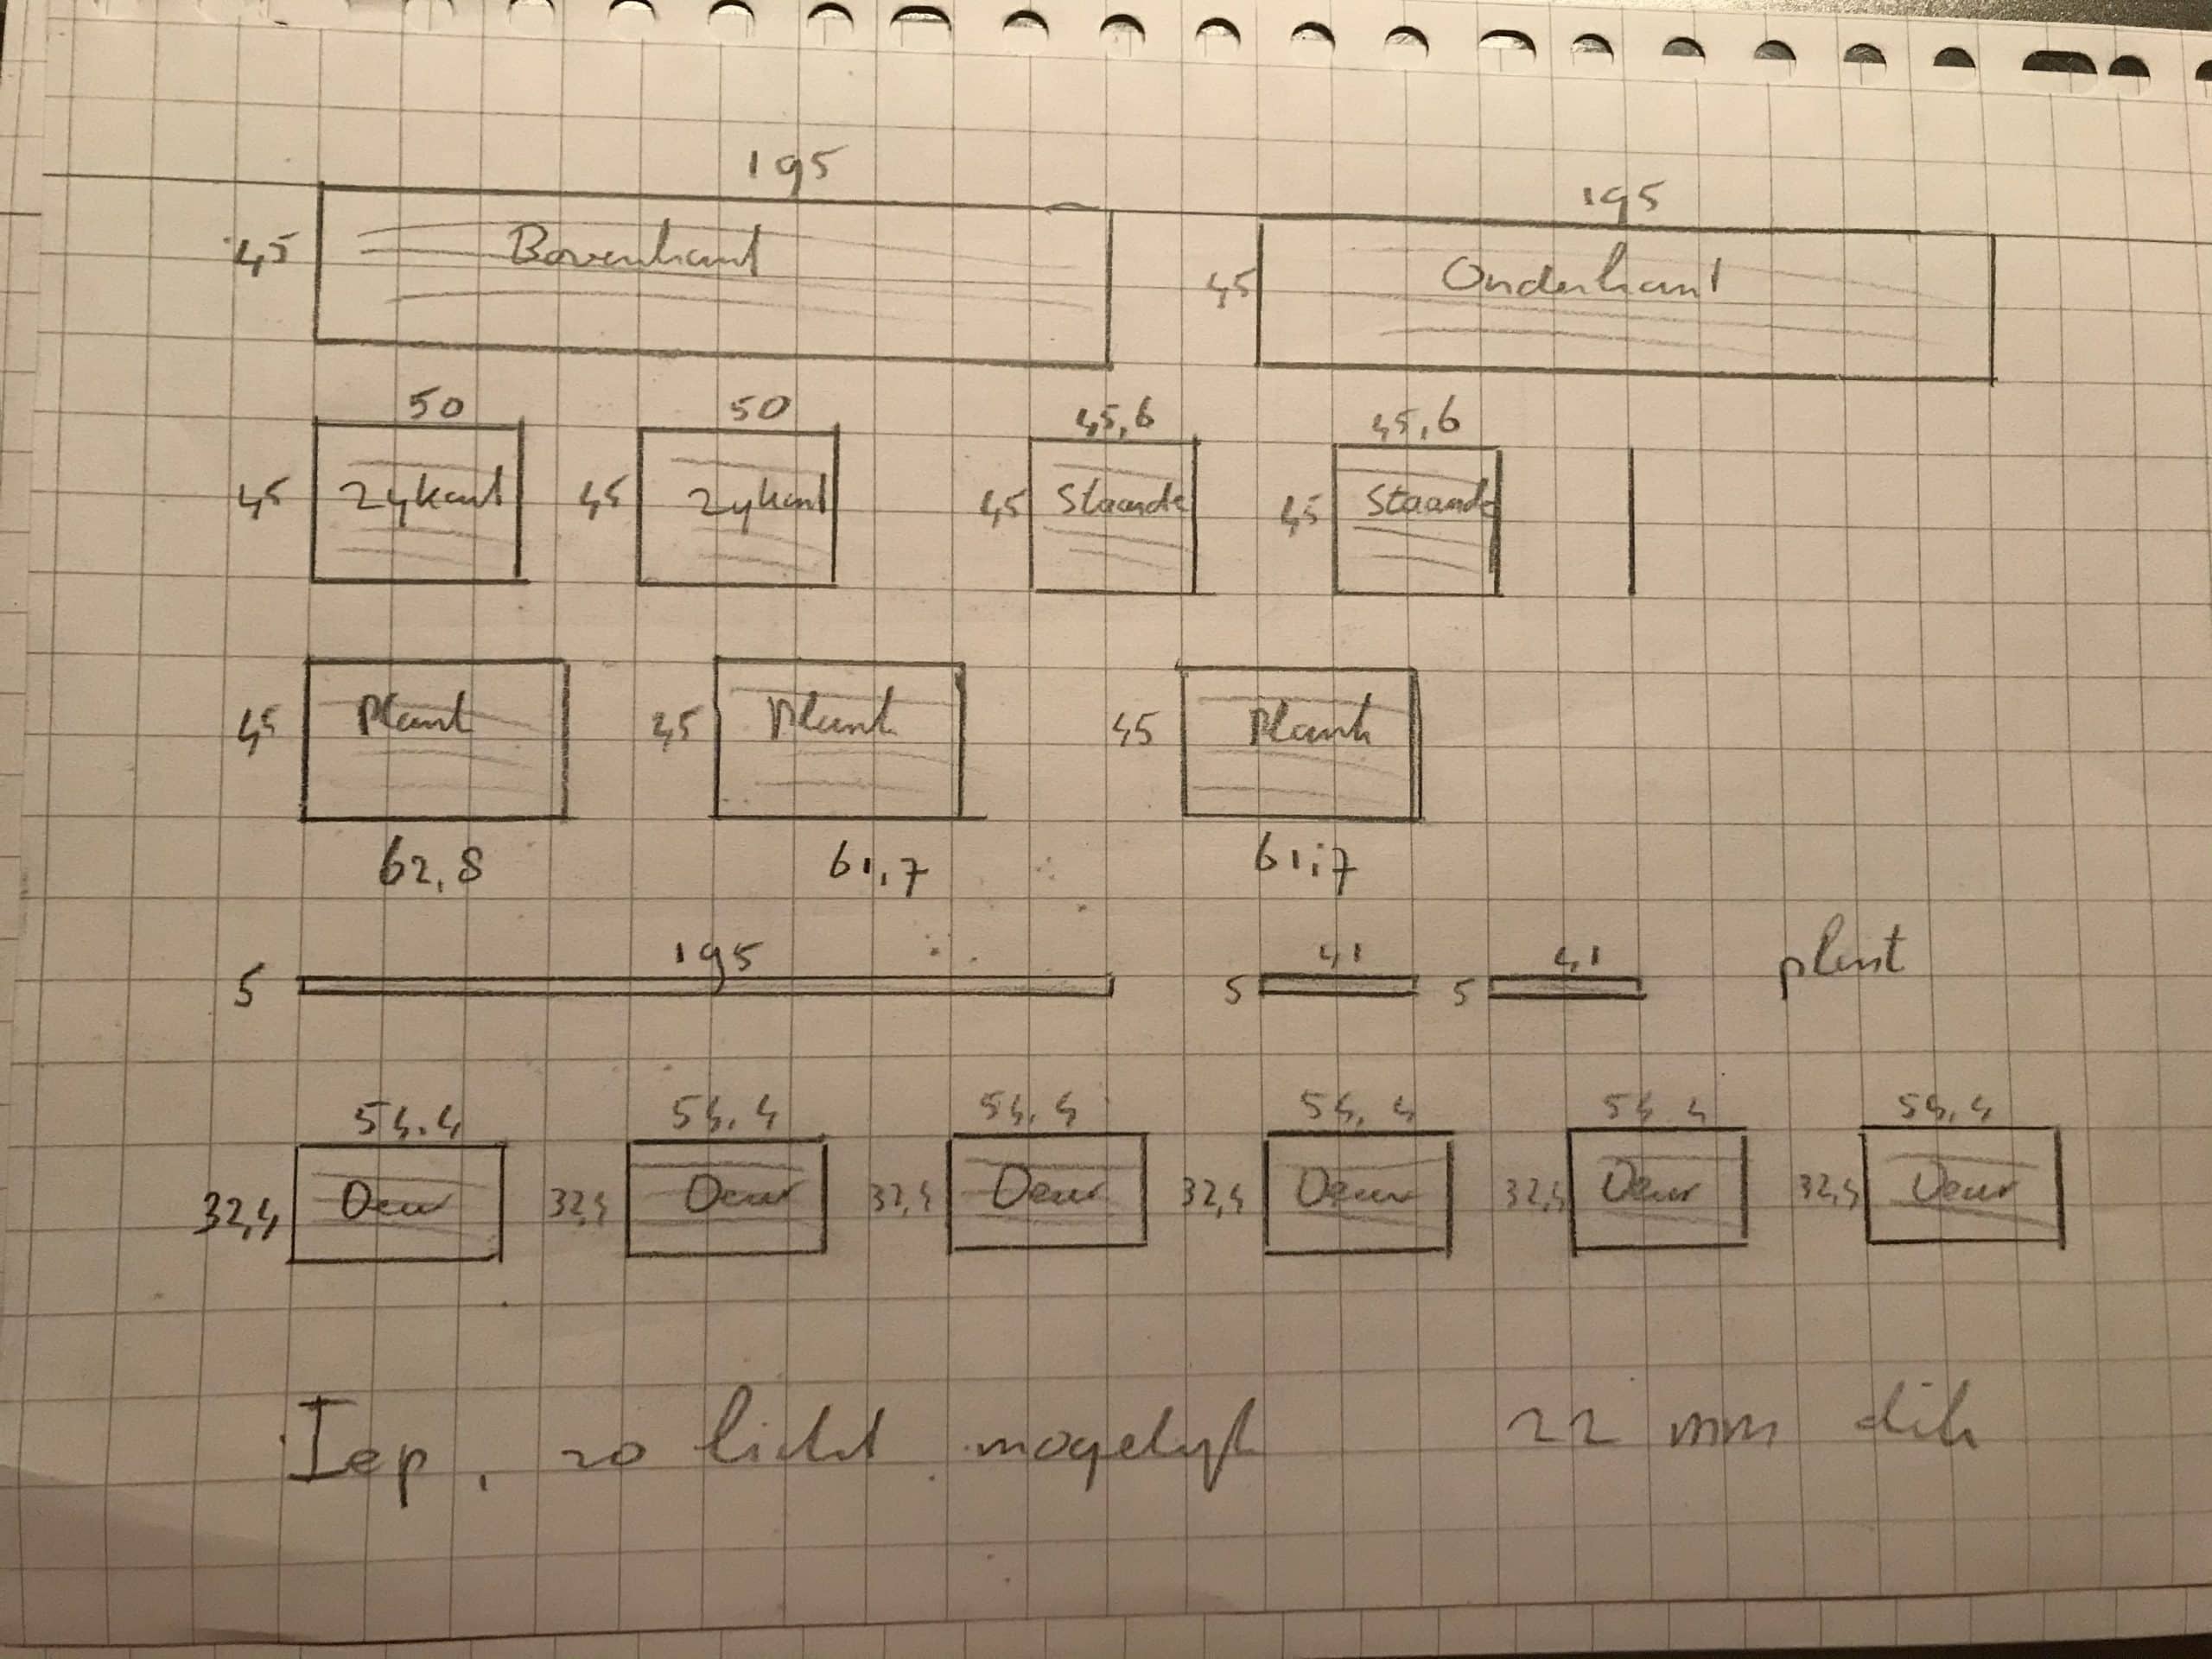 195 195
45 Bovenkant 45 Onderkant
50 50 45,6 45,6
45 Zykant 45 Zykant 45 Staande 45 Staande
45 Plank 45 Plank 45 Plank
62,8 61,7 61,7
5 195 5 41 5 41 plint
54.4 54.4 54.4 54.4 54.4 54.4
32,4 Deur 32,4 Deur 32,4 Deur 32,4 Deur 32,4 Deur 32,4 Deur
Iep, zo licht mogelyk 22 mm dik